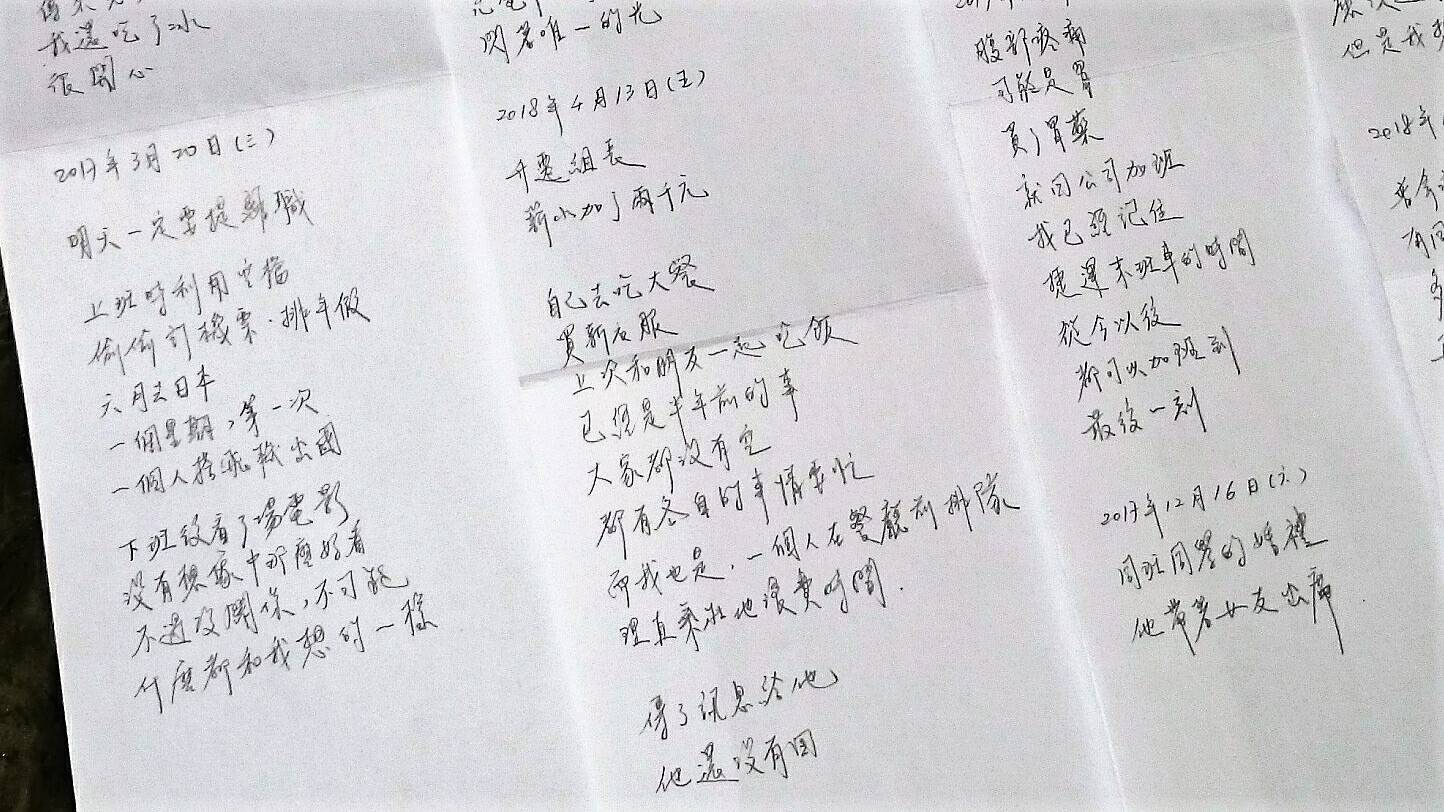 我還吃了冰
很開心
2017年3月20日(三)
明天一定要提離職
上班時利用空檔
偷偷訂機票、排年假
六月去日本
一個星期，第一次
一個人搭飛機出國
下班後看了場電影
沒有想像中那麼好看
不過沒關係，不可能
什麼都和我想的一樣
閃著唯一的光
2018年4月13日(五)
升遷組長
薪水加了兩千元
自己去吃大餐
買新衣服
上次和朋友一起吃飯
已經是半年前的事
大家都沒有空
都有各自的事情要忙
而我也是，一個人在餐廳前排隊
理直氣壯地浪費時間.
傳了訊息給他
他還沒有回
腹部疼痛
可能是胃
買了胃藥
就回公司加班
我已經記住
捷運末班車的時間
從今以後
都可以加班到
最後一刻
2017年12月16日(六)
同班同學的婚禮
他帶著女友出席.
但是我
2018年